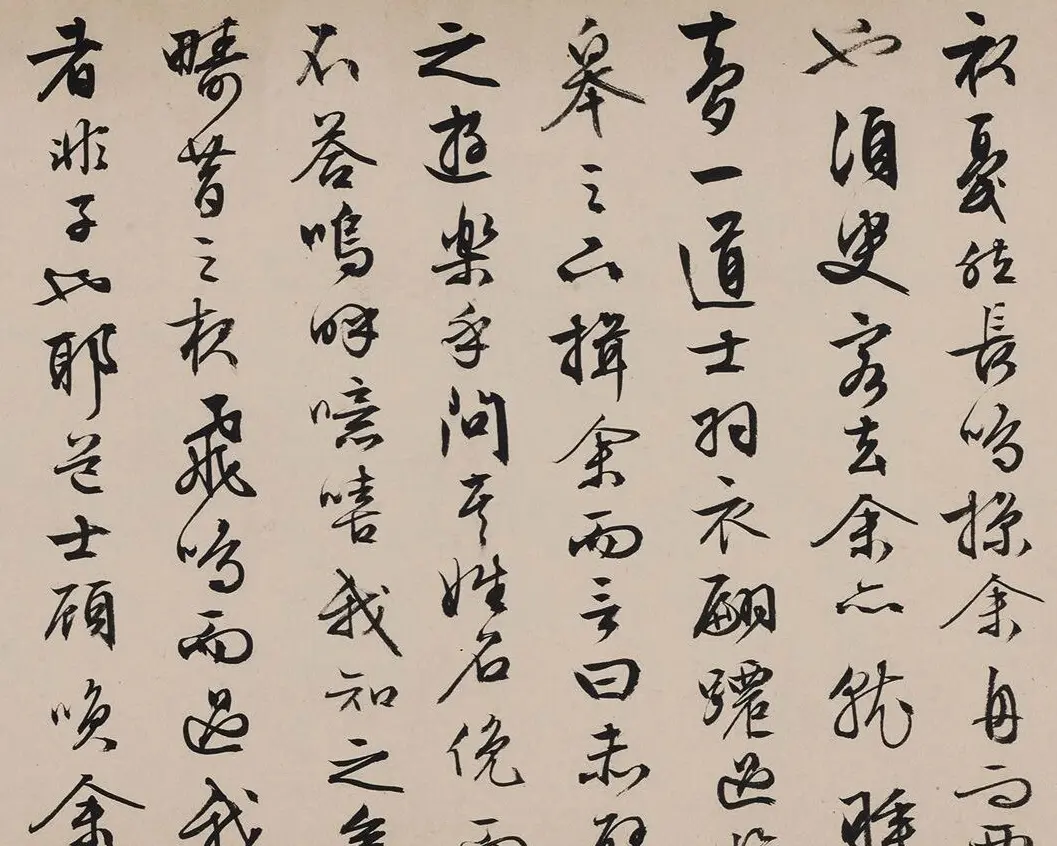 衣戛然長鳴掠余舟而西
也須臾客去余亦就睡
夢一道士羽衣翩躚過
皋之下揖余而言曰赤壁
之遊樂乎問其姓名俛而
不荅嗚呼噫嘻我知之矣
疇昔之夜飛鳴而過我
者非子也耶道士顧咲余